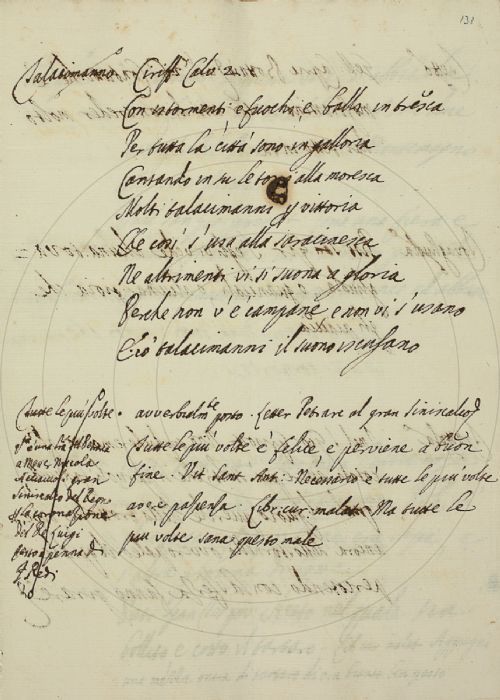 131
Talacimanno. Ciriff. Calv. 2.
Con istormenti e fuochi, e balli in tresca
Per tutta la città sono in galloria
Cantando in su le torri alla moresca
Molti talacimanni p vittoria
Che così s'usa alla saracinesca
Ne altrimenti vi si suona a gloria
Perche non v'è campane e non vi s'usano
E i talacimanni il suono
Tutte le più volte. avverbialmte posto. Letter Petrar. al gran Siniscalco
Tutte le più volte è felice e perviene a buon
fine. Vit. Sant. Ant. Necessario è tutte le più volte
avere pazienza. Libr. cur. malatt. Ma tutte le
piu volte sana questo male
a Messer Niccola
Acciaiuoli gran
Siniscalco del Regno
coronazione
del Re Luigi
penna di
F. Redi